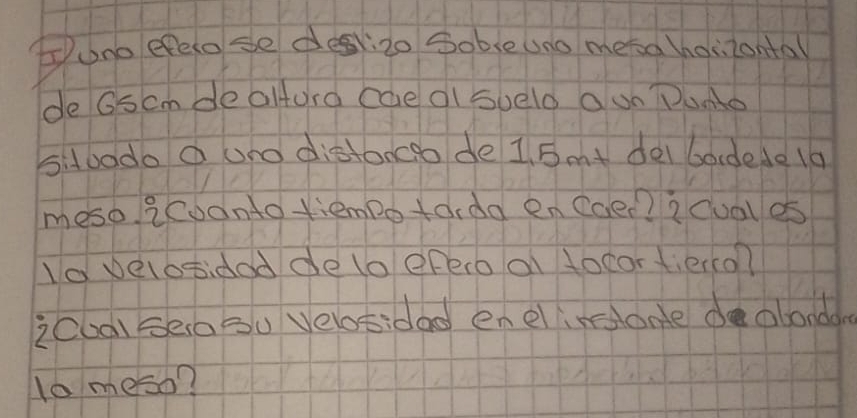 I) una efera se deslizo Sobre una mesa horizontal
de 65cm de altura cae al suelo a un Punto
situado a una distancia de 1,5mt del borde de la
mesa. ¿Cuanto tiempo tarda en caer? ¿cual es
la velosidad de la efera al tocar tierra?
¿Cual sera su velosidad en el instante de abandona
la mesa?